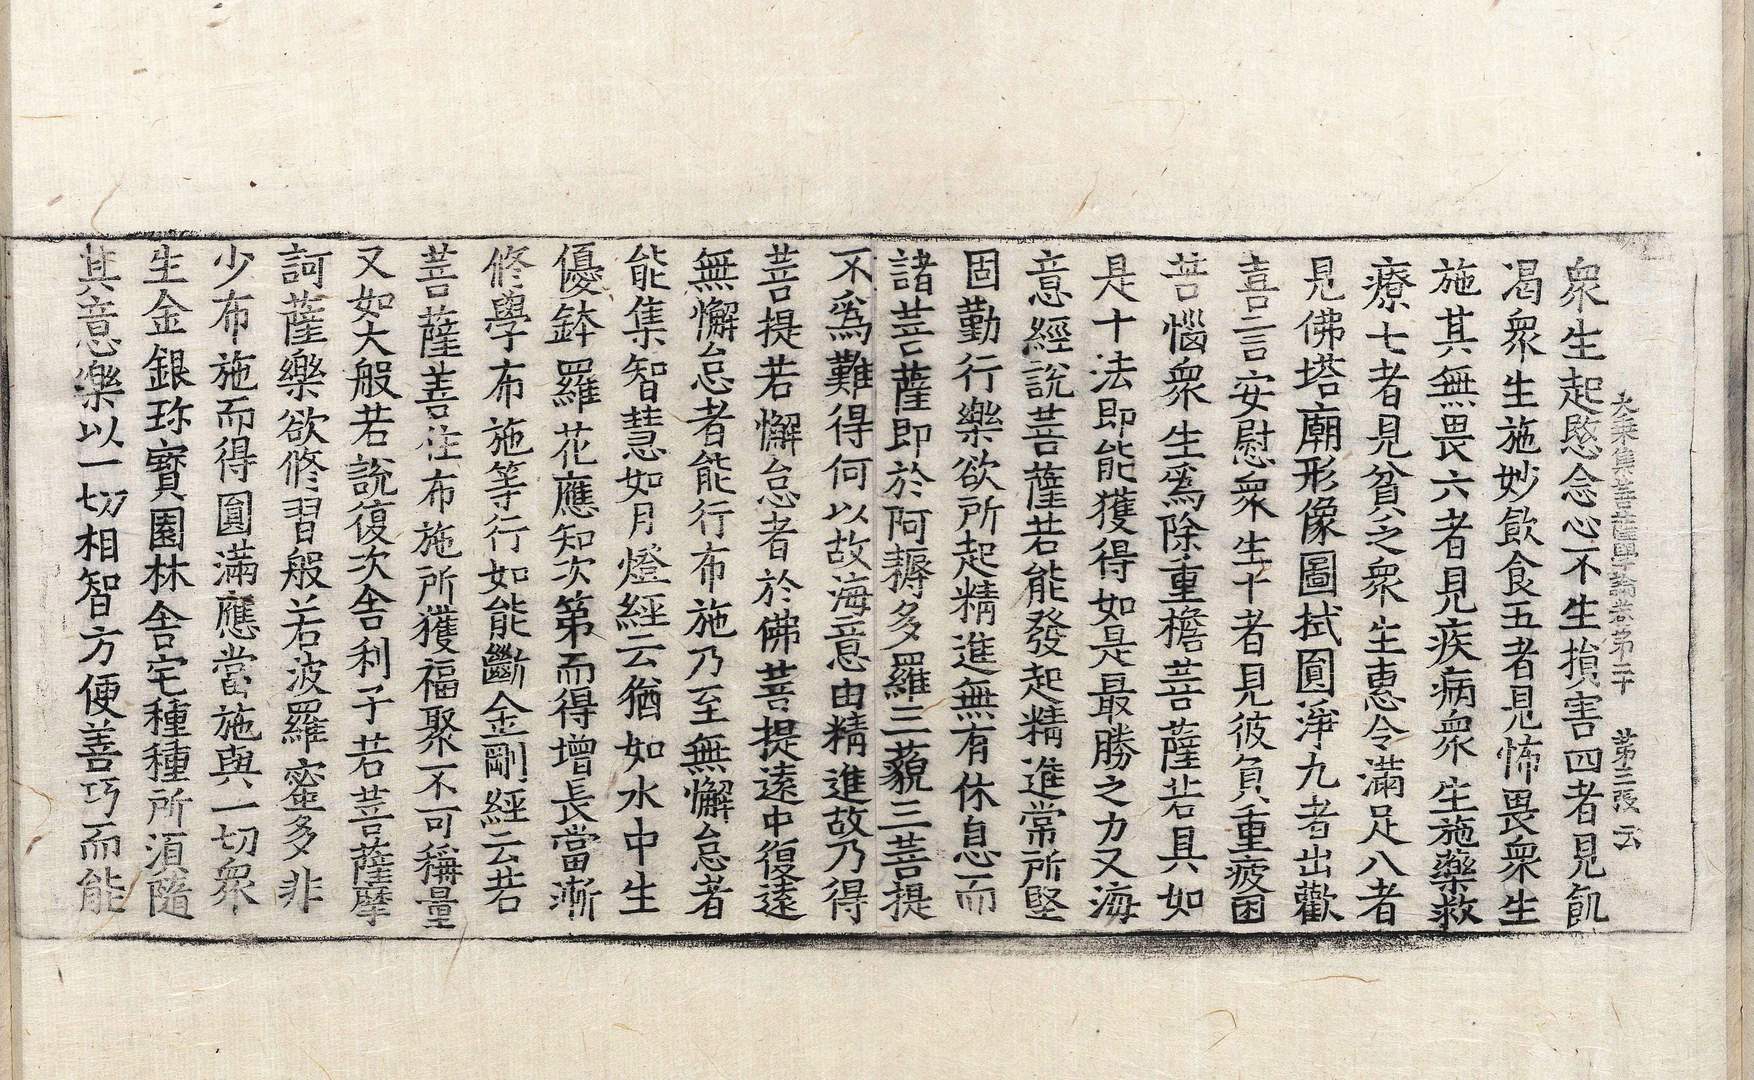 大乘集菩薩學論卷第二十　第三張　云
衆生起愍念心不生損害四者見飢
渴衆生施妙飲食五者見怖畏衆生
施其無畏六者見疾病衆生施藥救
療七者見貧乏衆生惠令滿足八者
見佛塔廟形像圖拭圓淨九者出歡
喜言安慰衆生十者見彼負重疲困
苦惱衆生爲除重檐菩薩若具如
是十法即能獲得如是最勝之力又海
意經說菩薩若能發起精進常所堅
固勤行樂欲所起精進無有休息而
諸菩薩即於阿耨多羅三藐三菩提
不爲難得何以故海意由精進故乃得
菩提若懈怠者於佛菩提遠中復遠
無懈怠者能行布施乃至無懈怠者
能集智慧如月燈經云猶如水中生
優鉢羅花應知次第而得增長當漸
修學布施等行如能斷金剛經云若
菩薩善住布施所獲福聚不可稱量
又如大般若說復次舍利子若菩薩摩
訶薩樂欲修習般若波羅蜜多非
少布施而得圓滿應當施與一切衆
生金銀珎寶園林舍宅種種所須隨
其意樂以一切相智方便善巧而能